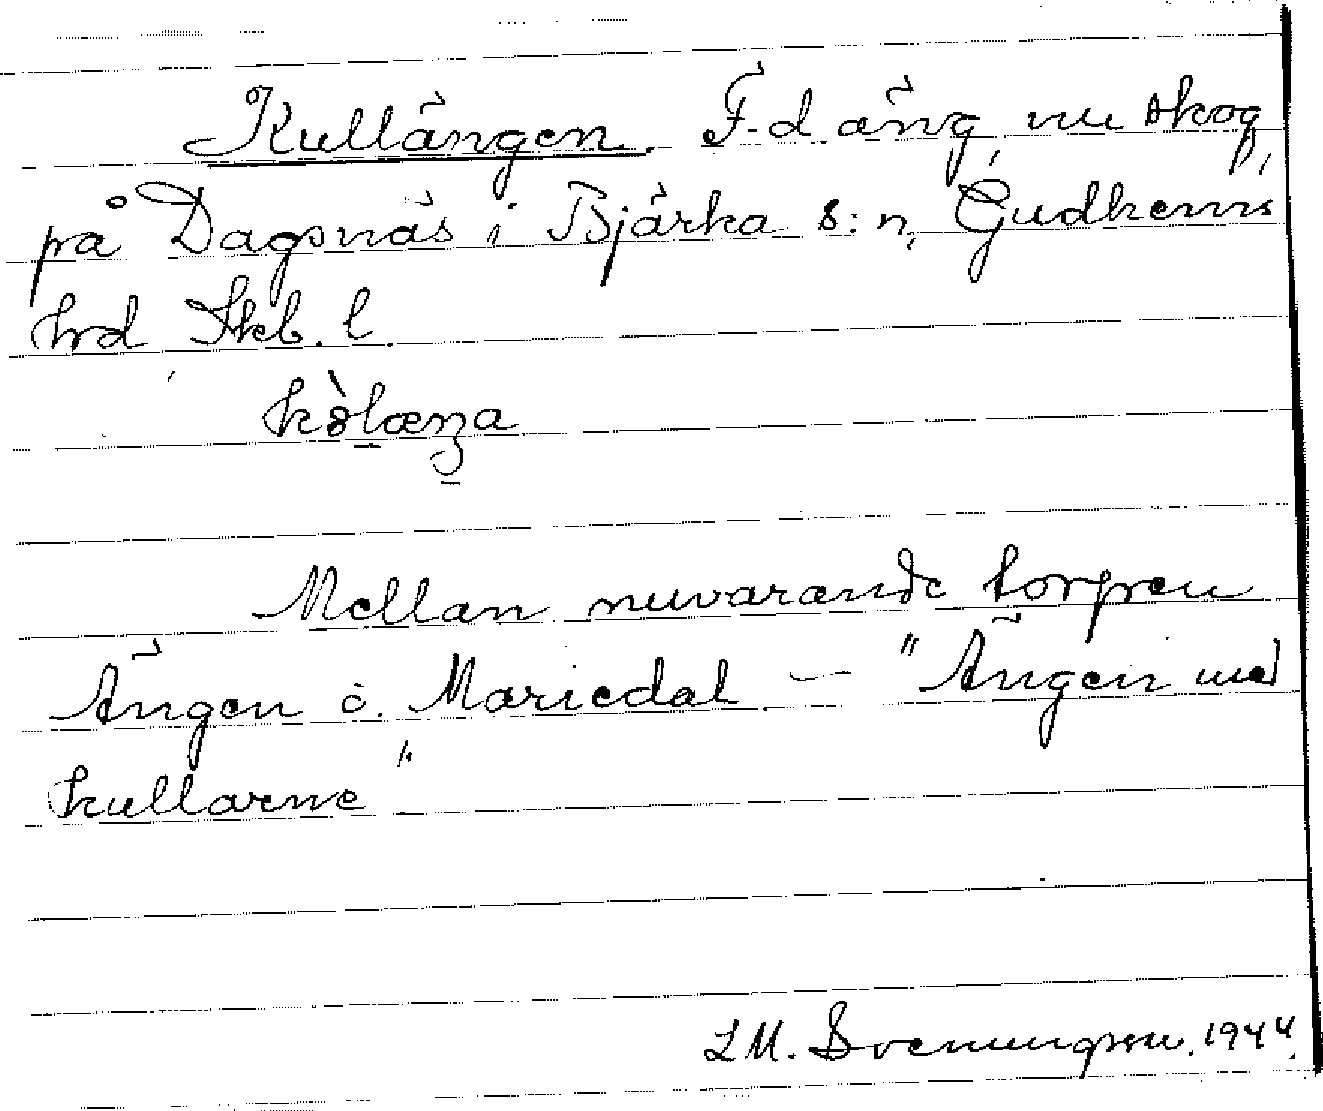 Kullängen. F.d äng, nu skog,
på Dagsnäs i Bjärka s:n, Gudhems
hrd Skb. l.
kòlæŋa
Mellan nuvarande torpen
Ängen o. Mariedal — "Ängen med
kullarne"
L M. Svenungsson. 1944.